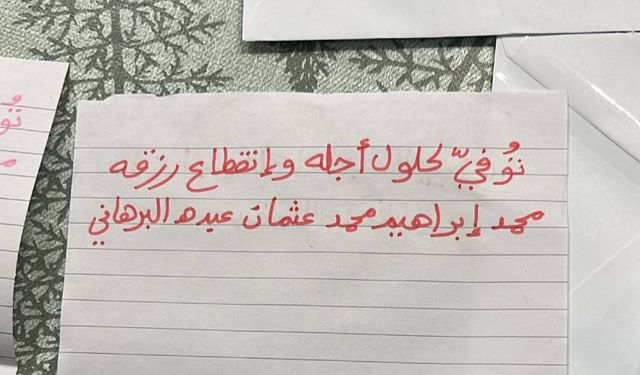 تُوُفيّ لحلول أجله وإنقطاع رزقه
محمد إبراهيم محمد عثمان عبده البرهاني